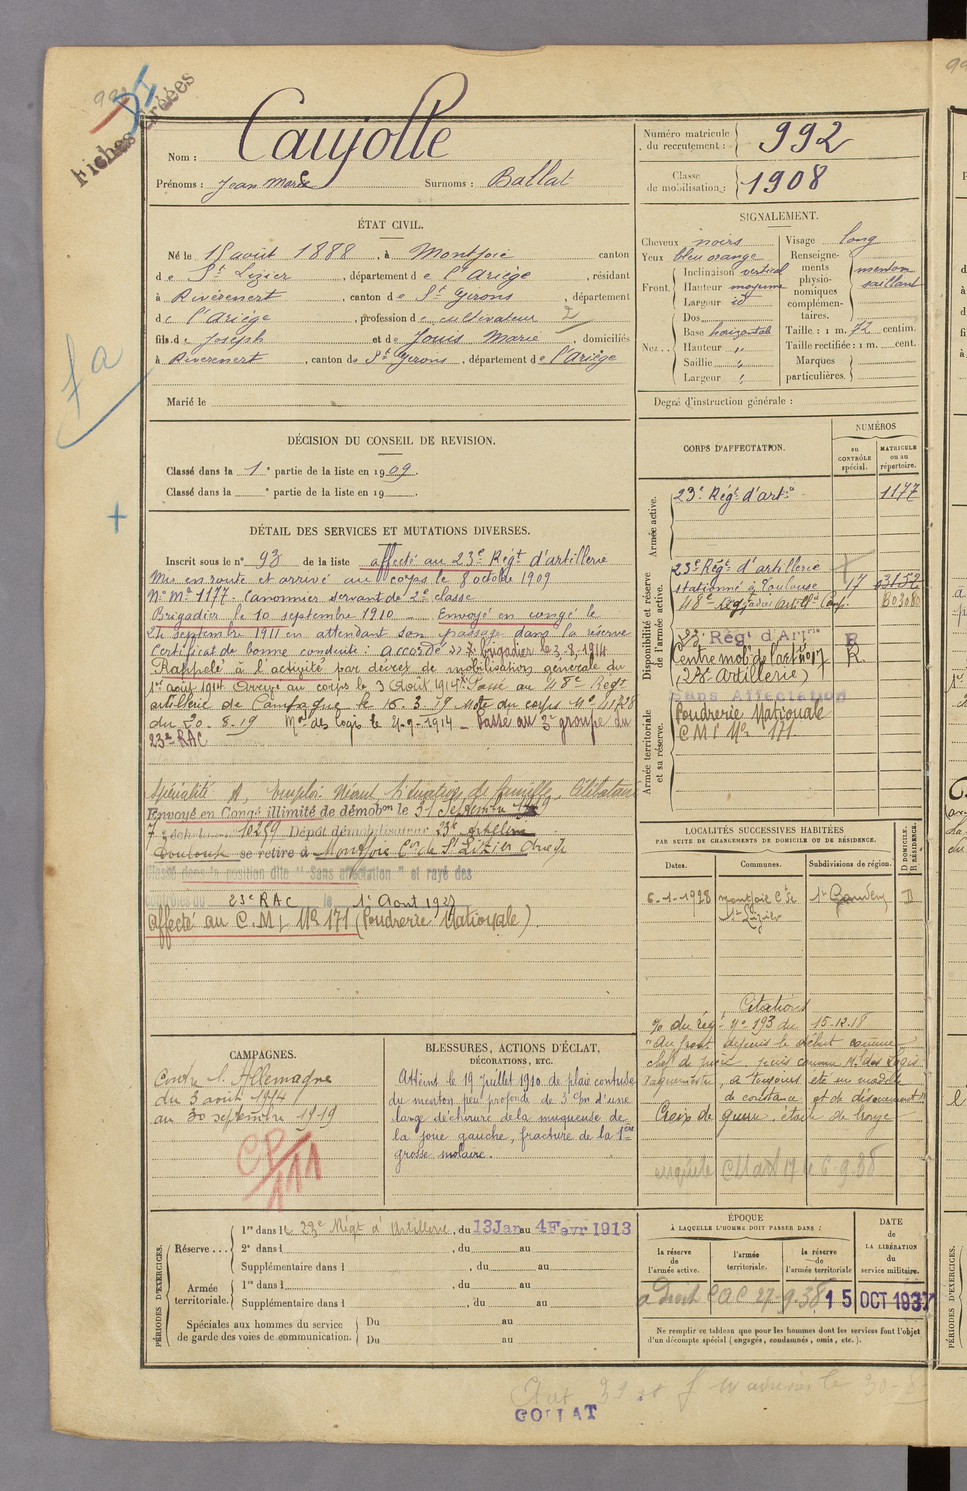 Fiches créées
992
Nom : Caujolle
Prénoms : Jean Marie Surnoms : Ballat
Numéro matricule du recrutement : 992
Classe de mobilisation : 1908
ÉTAT CIVIL.
Né le 18 août 1888, à Montjoie canton
de St Lizier, département de l'Ariège, résidant
à Rivèrenert, canton de St Girons, département
de l'Ariège, profession de cultivateur
fils de Joseph et de Jouis Marie, domiciliés
à Rivèrenert, canton de St Girons, département de l'Ariège
Marié le
SIGNALEMENT.
Cheveux noirs
Yeux bleu orange
Front. Inclinaison vertical
Hauteur moyenne
Largeur id
Nez.. Dos
Base horizontal
Hauteur "
Saillie "
Largeur "
Visage long
Renseignements physionomiques complémentaires. menton saillant
Taille : 1 m. 72 centim.
Taille rectifiée : 1 m. cent.
Marques particulières.
Degré d'instruction générale :
DÉCISION DU CONSEIL DE REVISION.
Classé dans la 1e partie de la liste en 1909.
Classé dans la e partie de la liste en 19 .
DÉTAIL DES SERVICES ET MUTATIONS DIVERSES.
Inscrit sous le n° 93 de la liste affecté au 23e Régt d'artillerie
Mis en route et arrivé au corps le 8 octobre 1909
N° Mle 1177. Canonnier servant de 2e classe
Brigadier le 10 septembre 1910 - Envoyé en congé le
24 septembre 1911 en attendant son passage dans la réserve
Certificat de bonne conduite : accordé brigadier le 3-8-1914
Rappelé à l'activité par décret de mobilisation générale du
1er août 1914 Arrivé au corps le 3 Août 1914. Passé au 48e Régt
artillerie de Campagne le 16.3.19 Note du corps N° 11728
du 20-8-19 Mal des logis le 4-9-1914 - Passé au 3e groupe du
23e RAC
Spécialité A, Emploi Néant, Situation de famille, Célibataire
Envoyé en Congé illimité de démobon le
7e échelon 10259 Dépôt démobilisateur 23e artillerie
Toulouse se retire à Montjoie Con de St Lizier Ariège
Classé dans la position dite "Sans affectation" et rayé des
contrôles du 23e RAC le 1er Aout 1927
Affecté au C.M.I. N° 171 (Poudrerie Nationale)
CORPS D'AFFECTATION.
NUMÉROS
au CONTRÔLE spécial.
MATRICULE ou au répertoire.
Armée active.
23e Régt d'artie 1177
Disponibilité et réserve de l'armée active.
23e Régt d'artillerie
stationné à Toulouse 17
23e Rég. d'Artie R
Centre mobr de l'artie n° 17 R
(23e Artillerie)
Armée territoriale et sa réserve.
Sans Affectation
Poudrerie Nationale
C M I N° 171
LOCALITÉS SUCCESSIVES HABITÉES
PAR SUITE DE CHANGEMENTS DE DOMICILE OU DE RÉSIDENCE.
Dates. Communes. Subdivisions de région. D DOMICILE. R RÉSIDENCE.
6-1-1928 Montjoie Con de St Lizier St Gaudens D
Citations
O/ du régt N° 193 du 15-12-18
"Au front depuis le début comme
chef de pièce, puis comme M. des Logis
a toujours été un modèle
de constance et de dévouement"
Croix de guerre étoile de bronze
CAMPAGNES.
Contre l'Allemagne
du 3 août 1914
au 30 septembre 1919
CP/111
BLESSURES, ACTIONS D'ÉCLAT,
DÉCORATIONS, ETC.
Atteint le 19 juillet 1910 de plaie contuse
du menton peu profonde de 3 c/m d'une
large déchirure de la muqueuse de
la joue gauche, fracture de la 1ère
grosse molaire.
PÉRIODES D'EXERCICES.
Réserve... 1re dans le 23e Régt d'Artillerie, du 13 Jan au 4 Fevr 1913
2e dans l , du au
Supplémentaire dans l , du au
Armée territoriale. 1re dans l , du au
Supplémentaire dans l , du au
Spéciales aux hommes du service de garde des voies de communication. Du au
Du au
ÉPOQUE
À LAQUELLE L'HOMME DOIT PASSER DANS :
la réserve de l'armée active.
l'armée territoriale.
la réserve de l'armée territoriale
DATE de LA LIBÉRATION du service militaire.
a droit C A C 27-9-38 15 OCT 1937
Ne remplir ce tableau que pour les hommes dont les services font l'objet
d'un décompte spécial (engagés, condamnés, omis, etc.).